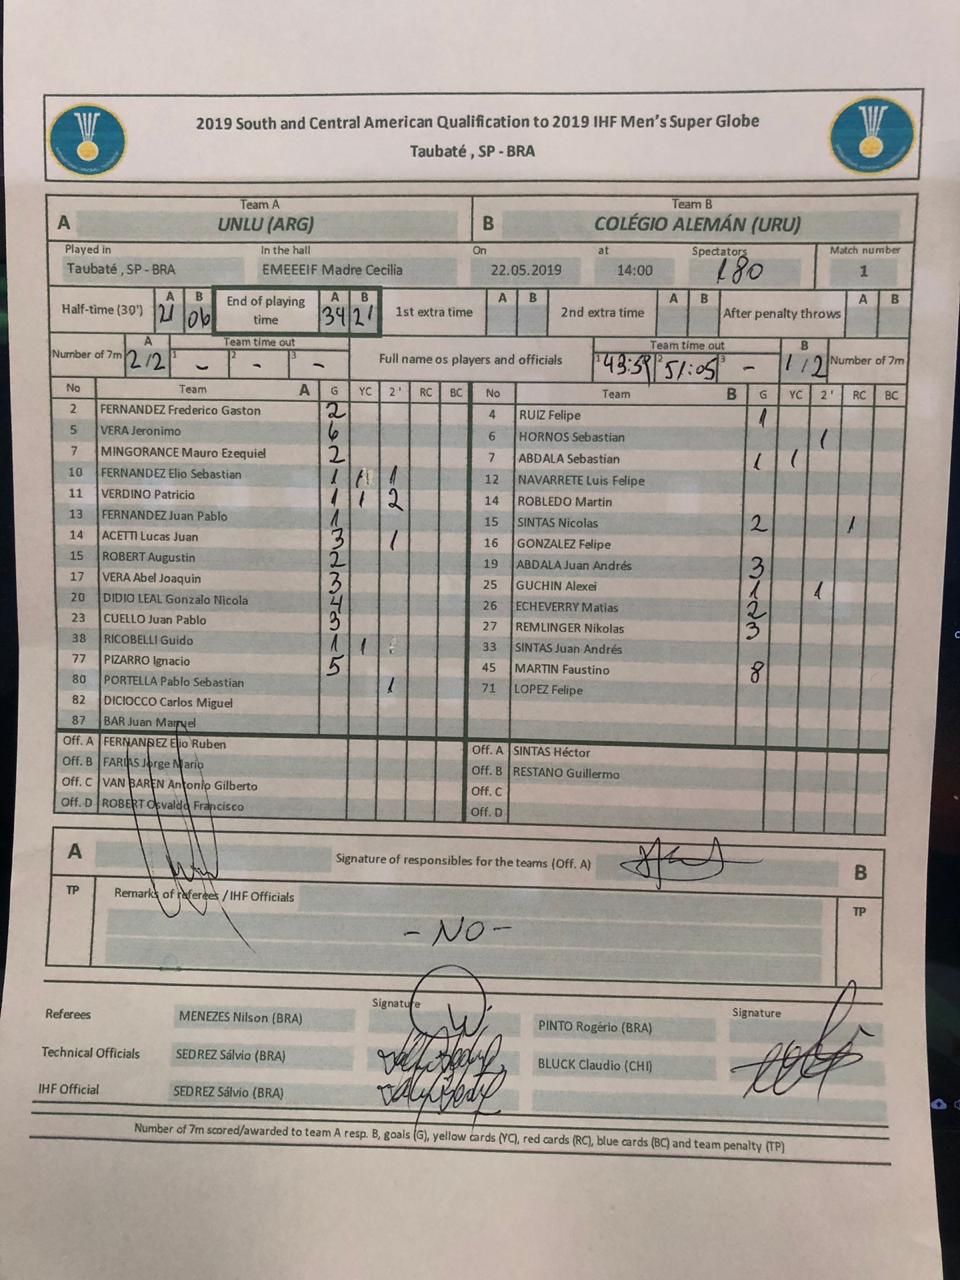 2019 South and Central American Qualification to 2019 IHF Men's Super Globe
Taubaté , SP - BRA
Team A Team B
A UNLU (ARG) B COLÉGIO ALEMÁN (URU)
Played in In the hall On at Spectators Match number
Taubaté , SP - BRA EMEEEIF Madre Cecilia 22.05.2019 14:00 180 1
Half-time (30') A 21 B 06 End of playing time A 34 B 21 1st extra time A B 2nd extra time A B After penalty throws A B
Number of 7m A 2/2 Team time out 1 - 2 - 3 - Full name os players and officials Team time out 1 43:59 2 51:05 3 - B 1/2 Number of 7m
No Team A G YC 2' RC BC No Team B G YC 2' RC BC
2 FERNANDEZ Frederico Gaston 2 4 RUIZ Felipe 1
5 VERA Jeronimo 6 6 HORNOS Sebastian 1
7 MINGORANCE Mauro Ezequiel 2 7 ABDALA Sebastian 1 1
10 FERNANDEZ Elio Sebastian 1 1 1 12 NAVARRETE Luis Felipe
11 VERDINO Patricio 1 1 2 14 ROBLEDO Martin
13 FERNANDEZ Juan Pablo 1 15 SINTAS Nicolas 2 1
14 ACETTI Lucas Juan 3 1 16 GONZALEZ Felipe
15 ROBERT Augustin 2 19 ABDALA Juan Andrés 3
17 VERA Abel Joaquin 3 25 GUCHIN Alexei 1 1
20 DIDIO LEAL Gonzalo Nicola 4 26 ECHEVERRY Matias 2
23 CUELLO Juan Pablo 3 27 REMLINGER Nikolas 3
38 RICOBELLI Guido 1 1 33 SINTAS Juan Andrés
77 PIZARRO Ignacio 5 45 MARTIN Faustino 8
80 PORTELLA Pablo Sebastian 1 71 LOPEZ Felipe
82 DICIOCCO Carlos Miguel
87 BAR Juan Manuel
Off. A FERNANDEZ Elio Ruben Off. A SINTAS Héctor
Off. B FARIAS Jorge Mario Off. B RESTANO Guillermo
Off. C VAN BAREN Antonio Gilberto Off. C
Off. D ROBERT Osvaldo Francisco Off. D
A Signature of responsibles for the teams (Off. A) B
TP Remarks of referees / IHF Officials TP
- NO -
Signature Signature
Referees MENEZES Nilson (BRA) PINTO Rogério (BRA)
Technical Officials SEDREZ Sálvio (BRA) BLUCK Claudio (CHI)
IHF Official SEDREZ Sálvio (BRA)
Number of 7m scored/awarded to team A resp. B, goals (G), yellow cards (YC), red cards (RC), blue cards (BC) and team penalty (TP)